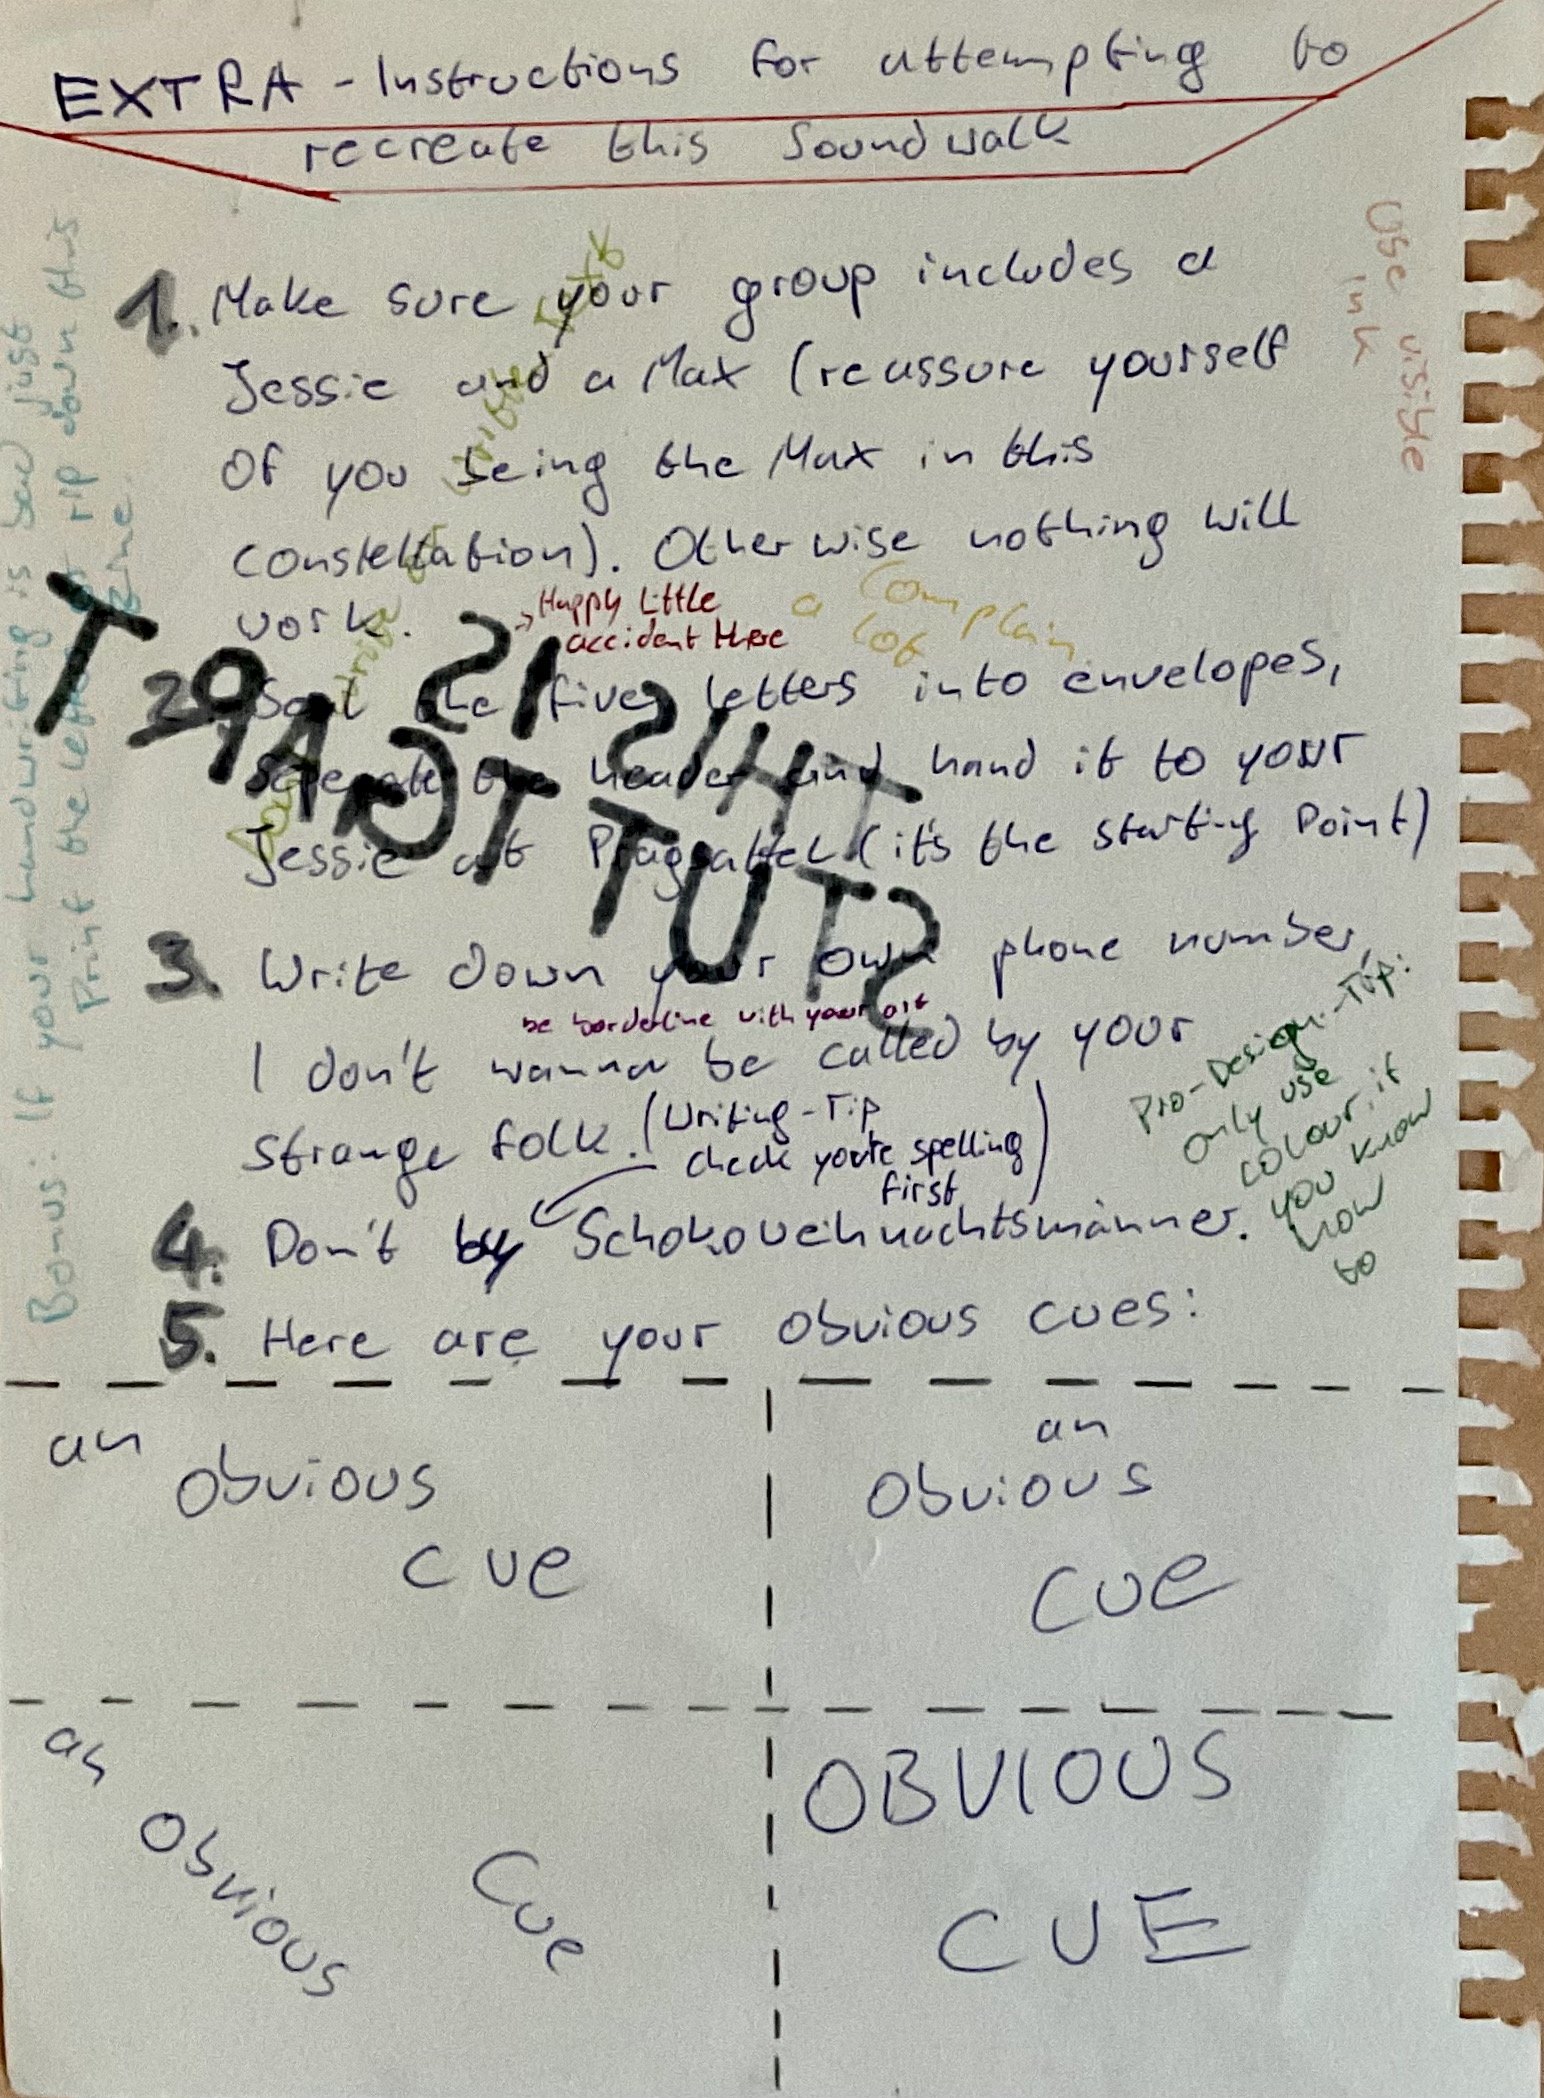 EXTRA - Instructions for attempting to
recreate this Soundwalk
1. Make sure your group includes a
Jessie and a Max (reassure yourself
of you being the Max in this
constellation). Otherwise nothing will
work.
→ Happy little
accident there
complain
a lot
2. Seal the five letters into envelopes,
Seperate the header and hand it to your
Jessie at Pragsattel (it's the starting Point)
3. Write down your own phone number,
be borderline with your art
I don't wanna be called by your
strange folk. (Writing-Tip
check you're spelling
first)
4. Don't by Schokoweihnachtsmänner.
5. Here are your obvious cues:
an
obvious
cue
an
obvious
cue
an
obvious
cue
OBVIOUS
CUE
Use visible
ink
Pro-Design-Tip:
only use
colour, if
you know
how
to
Bonus: If your handwriting is bad just
Print the letter or rip down this
THIS IS
NOT